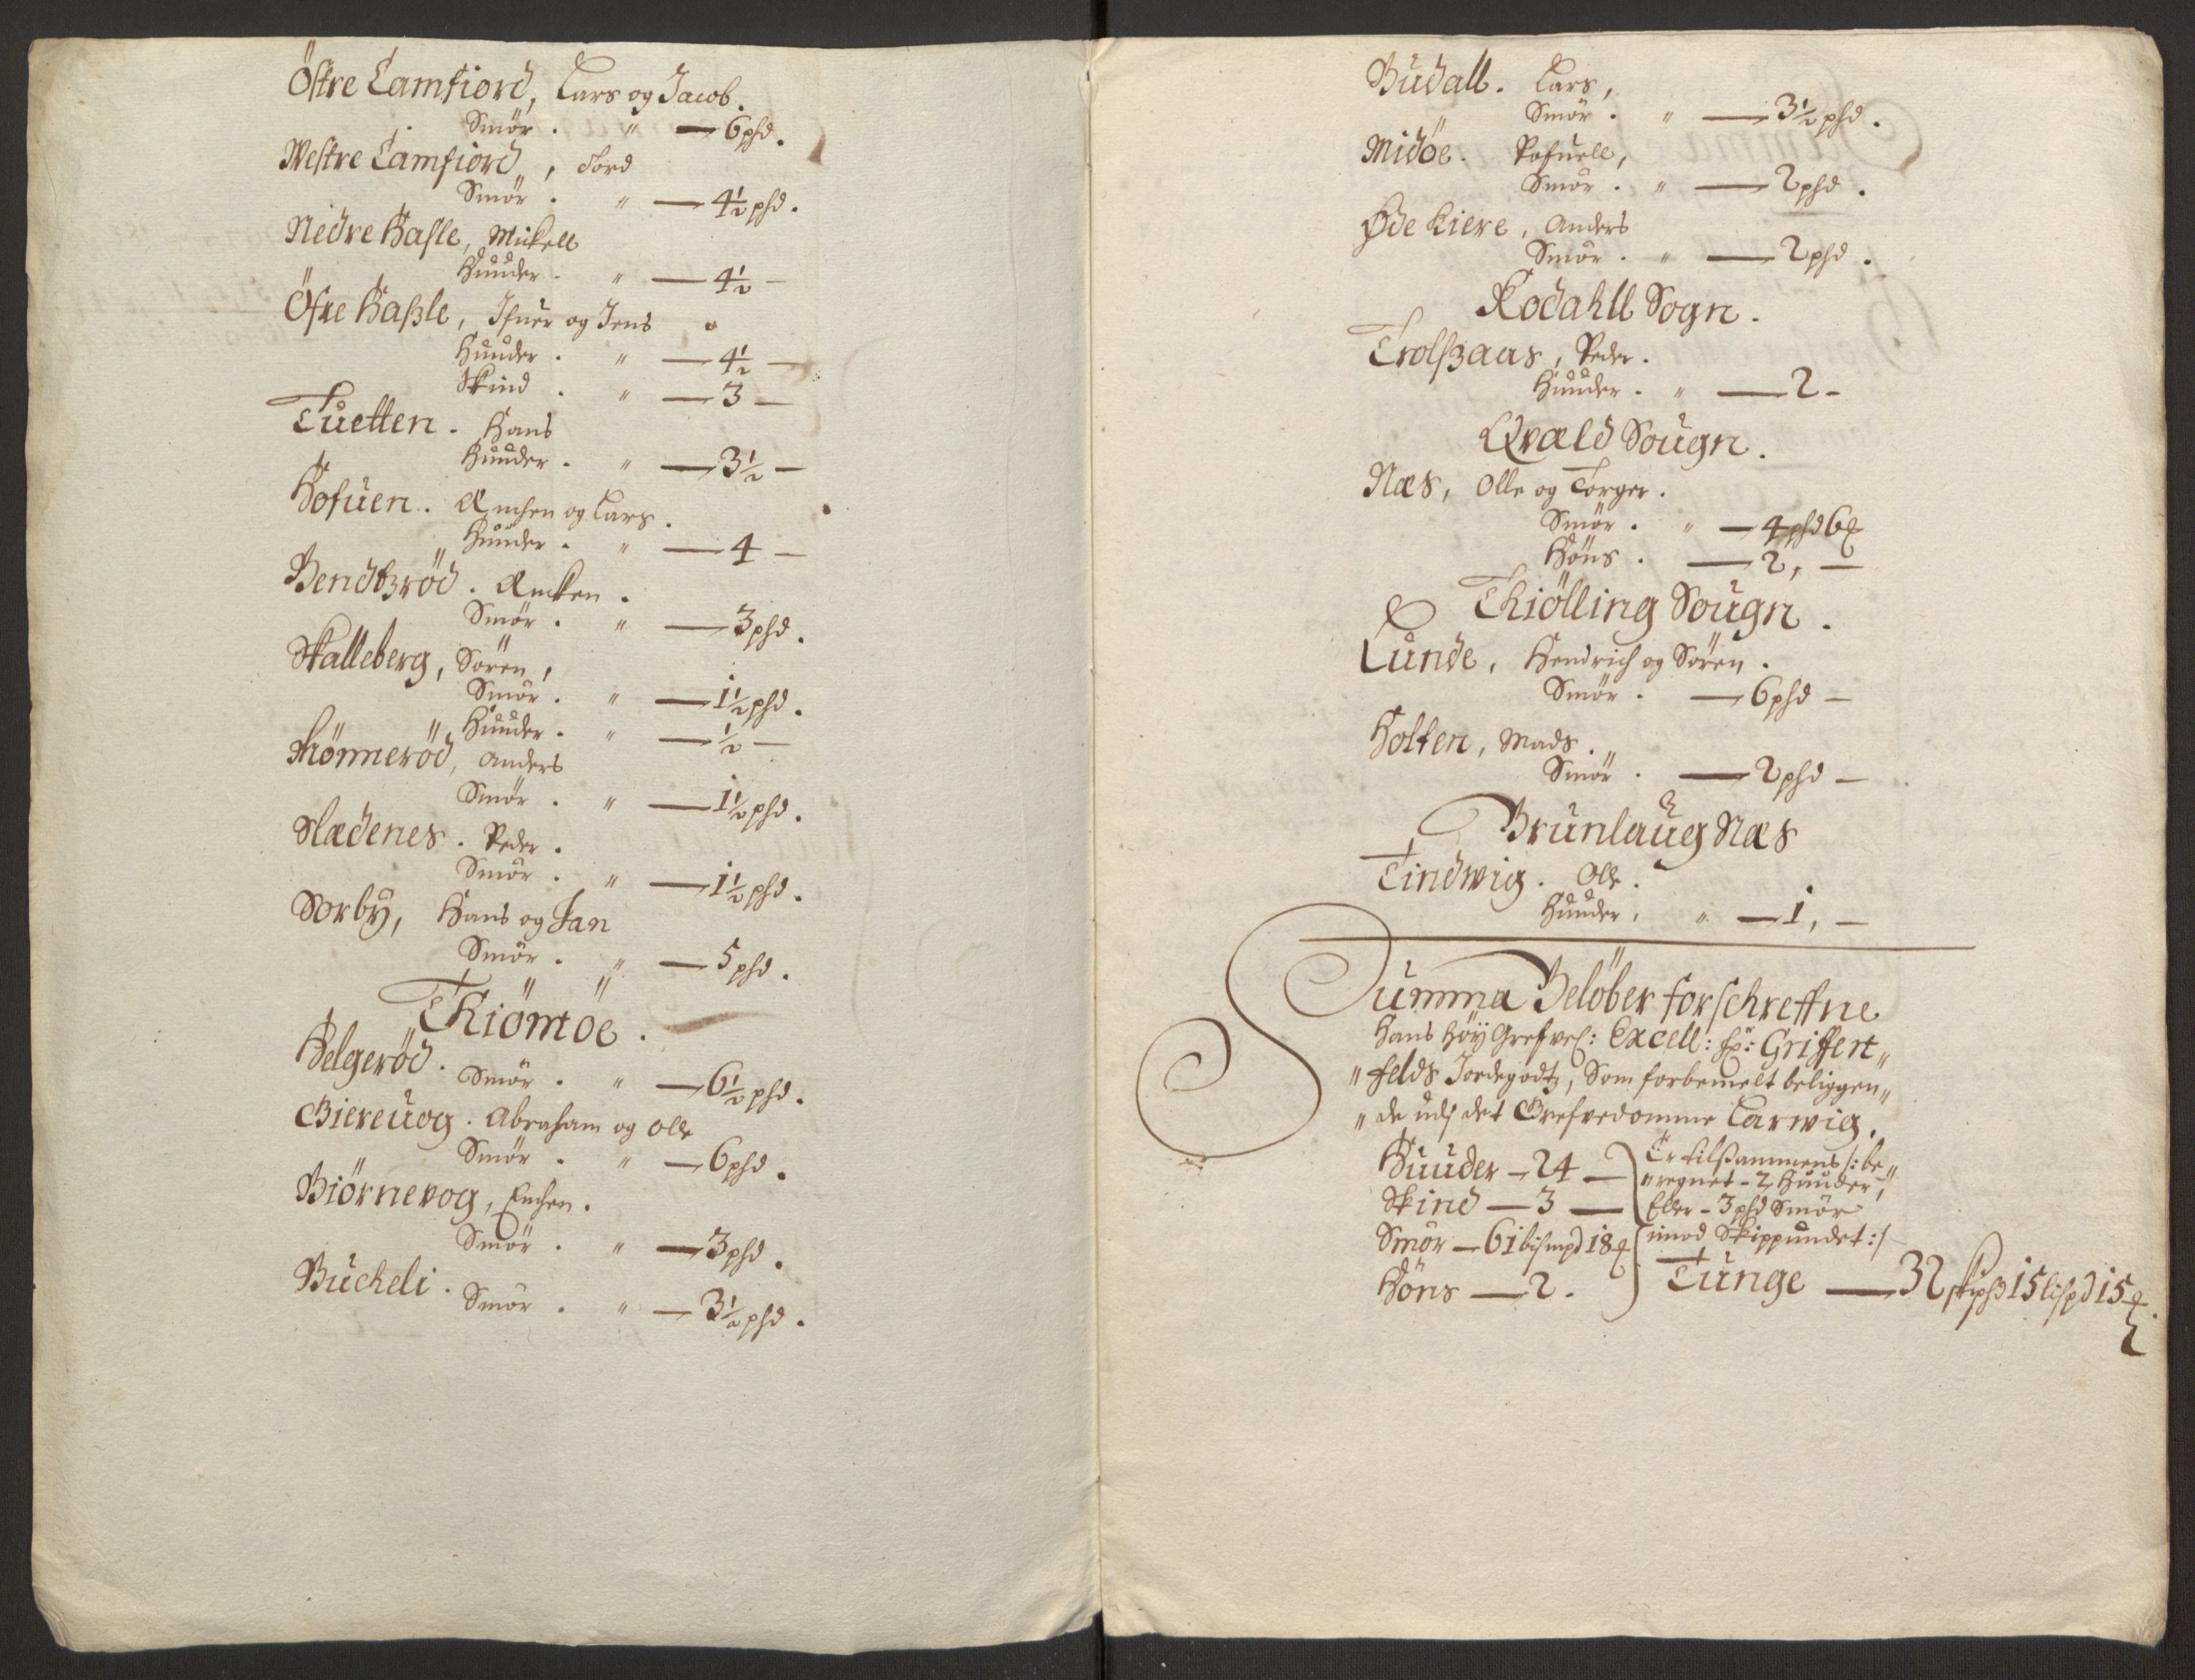 Östre Lamfiord, Lars og Jacob.
Smör . " — 6 phd.
Westre Lamfiord, Tord
Smör . " — 4½ phd.
Nedre Hasle, Mickell
Huuder . " — 4½ —
Öfre Haßle, Ifuer og Jens
Huuder . " — 4½ —
Skind . " — 3 —
Tuetten . Hans
Huuder . " — 3½ —
Hofuen . Enchen og Lars.
Huuder . " — 4 —
Bendtzröd . Encken .
Smör . " — 3 phd.
Skalleberg, Sören,
Smör . " — 1½ phd.
Huuder . " — ½ —
Mönneröd, Anders
Smör . " — 1½ phd.
Nædenes . Peder .
Smör . " — 1½ phd.
Sorby, Hans og Jan
Smör . " — 5 phd.
Thiömöe .
Helgeröd .
Smör . " — 6½ phd.
Giereuog . Abraham og Olle
Smör . " — 6 phd.
Biörnevog, Enchen .
Smör . " — 3 phd.
Bucheli .
Smör . " — 3½ phd.
Budall . Lars,
Smör . " — 3½ phd.
Midöe . Pofuell,
Smör . " — 2 phd.
Øde Kiere, Anders
Smör . " — 2 phd.
Kodahll Sogn .
Trolßaas, Peder .
Huuder . " — 2 -
Qvæld Sougn .
Næs, Olle og Torger .
Smör . " — 4 phd 6
Höns . — 2, —
Thiölling Sougn .
Lunde, Hendrich og Sören .
Smör . — 6 phd —
Holten, Mads .
Smör . — 2 phd —
Brunlaug Næs
Tindwig . Olle .
Huuder, " — 1, —
Summa Belöber forschreffne
Hans Höy Grefvel: Excell: Hr: Griffen"
"felds Jordegodtz, Som forbemelt beliggen"
"de udj det Grefvedomme Larwig.
Huuder — 24 — Er tilsammens /: be"
Skind — 3 — "regnet - 2 Huuder,
Eller - 3 phd Smör
Smör — 61 bismpd 18 imod Skippundet :/
Höns — 2 . Tunge — 32 skipp 15 lispd 15 .